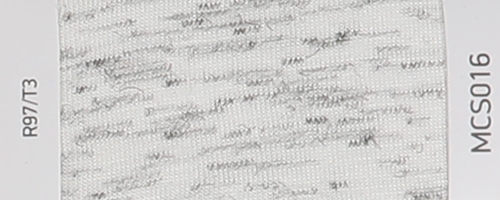 R97/T3
MCS016